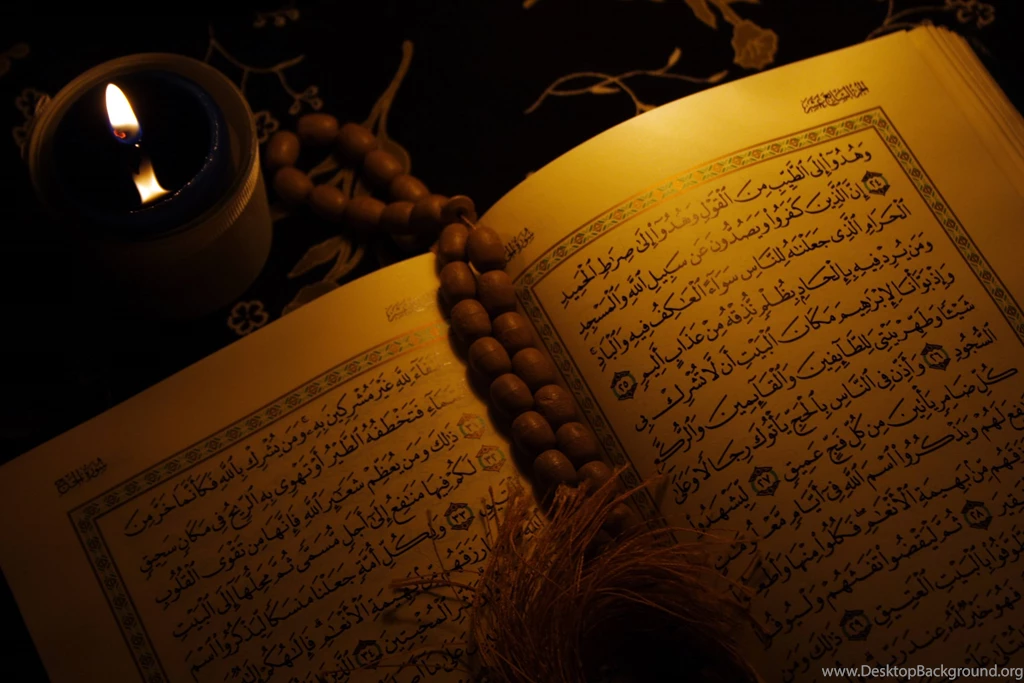 وَهُدُوٓا۟ إِلَى ٱلطَّيِّبِ مِنَ ٱلْقَوْلِ وَهُدُوٓا۟ إِلَىٰ صِرَٰطِ ٱلْحَمِيدِ
٢٤ إِنَّ ٱلَّذِينَ كَفَرُوا۟ وَيَصُدُّونَ عَن سَبِيلِ ٱللَّهِ وَٱلْمَسْجِدِ
ٱلْحَرَامِ ٱلَّذِى جَعَلْنَٰهُ لِلنَّاسِ سَوَآءً ٱلْعَٰكِفُ فِيهِ وَٱلْبَادِ
وَمَن يُرِدْ فِيهِ بِإِلْحَادٍۭ بِظُلْمٍ نُّذِقْهُ مِنْ عَذَابٍ أَلِيمٍ ٢٥
وَإِذْ بَوَّأْنَا لِإِبْرَٰهِيمَ مَكَانَ ٱلْبَيْتِ أَن لَّا تُشْرِكْ بِى
شَيْـًٔا وَطَهِّرْ بَيْتِىَ لِلطَّآئِفِينَ وَٱلْقَآئِمِينَ وَٱلرُّكَّعِ
ٱلسُّجُودِ ٢٦ وَأَذِّن فِى ٱلنَّاسِ بِٱلْحَجِّ يَأْتُوكَ رِجَالًا وَعَلَىٰ
كُلِّ ضَامِرٍ يَأْتِينَ مِن كُلِّ فَجٍّ عَمِيقٍ ٢٧ لِّيَشْهَدُوا۟
لَهُمْ وَيَذْكُرُوا۟ ٱسْمَ ٱللَّهِ فِىٓ أَيَّامٍ مَّعْلُومَٰتٍ
مِّنۢ بَهِيمَةِ ٱلْأَنْعَٰمِ فَكُلُوا۟ مِنْهَا
٢٨ ثُمَّ لْيَقْضُوا۟ تَفَثَهُمْ وَلْيُوفُوا۟
بِٱلْبَيْتِ ٱلْعَتِيقِ ٢٩ ذَٰلِكَ وَمَن
فَهُوَ خَيْرٌ لَّهُۥ عِندَ رَبِّهِۦ
سُورَةُ الحَجِّ
حُنَفَآءَ لِلَّهِ غَيْرَ مُشْرِكِينَ بِهِۦ وَمَن يُشْرِكْ بِٱللَّهِ فَكَأَنَّمَا خَرَّ مِنَ
ٱلسَّمَآءِ فَتَخْطَفُهُ ٱلطَّيْرُ أَوْ تَهْوِى بِهِ ٱلرِّيحُ فِى مَكَانٍ سَحِيقٍ
٣١ ذَٰلِكَ وَمَن يُعَظِّمْ شَعَٰٓئِرَ ٱللَّهِ فَإِنَّهَا مِن تَقْوَى ٱلْقُلُوبِ
٣٢ لَكُمْ فِيهَا مَنَٰفِعُ إِلَىٰٓ أَجَلٍ مُّسَمًّى ثُمَّ مَحِلُّهَآ إِلَى ٱلْبَيْتِ
ٱلْعَتِيقِ ٣٣ وَلِكُلِّ أُمَّةٍ جَعَلْنَا مَنسَكًا لِّيَذْكُرُوا۟ ٱسْمَ
ٱللَّهِ رَزَقَهُم بَهِيمَةِ ٱلْأَنْعَٰمِ فَإِلَٰهُكُمْ
ٱلْمُخْبِتِينَ ٣٤
www.DesktopBackground.org